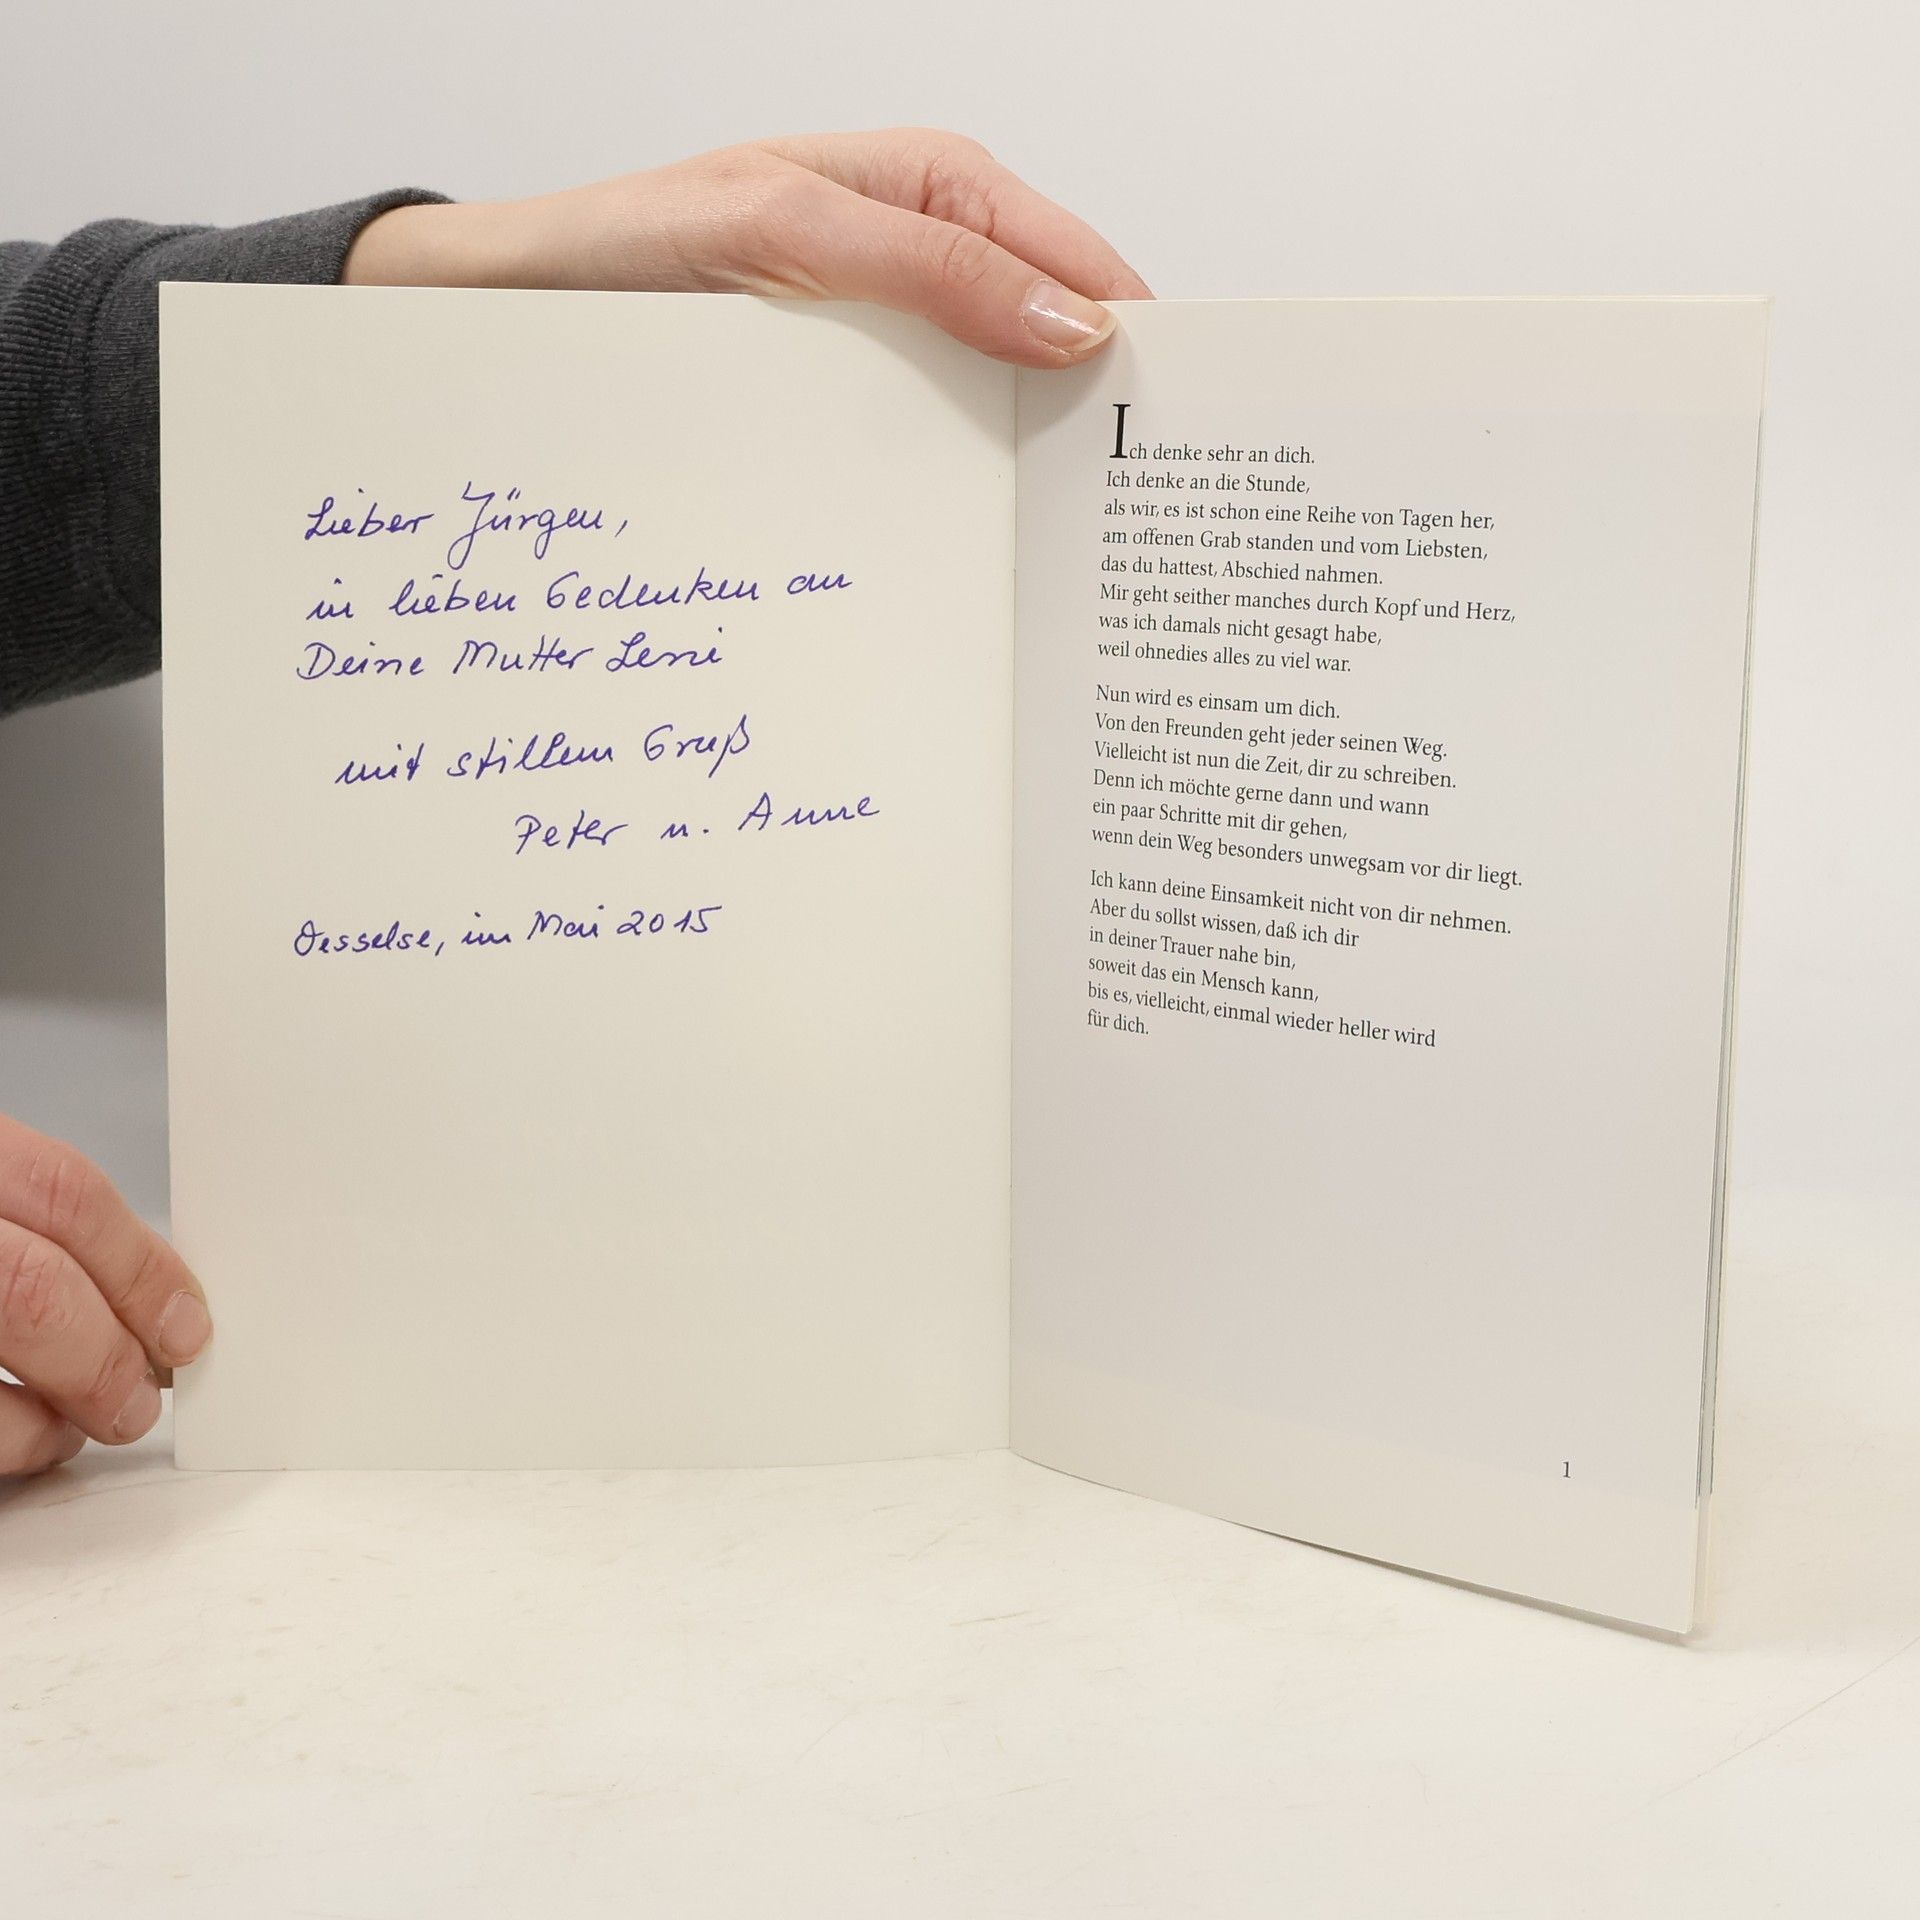 Lieber Jürgen,
in lieben Gedenken an
Deine Mutter Leni
mit stillem Gruß
Peter u. Anne
Oesselse, im Mai 2015
Ich denke sehr an dich.
Ich denke an die Stunde,
als wir, es ist schon eine Reihe von Tagen her,
am offenen Grab standen und vom Liebsten,
das du hattest, Abschied nahmen.
Mir geht seither manches durch Kopf und Herz,
was ich damals nicht gesagt habe,
weil ohnedies alles zu viel war.
Nun wird es einsam um dich.
Von den Freunden geht jeder seinen Weg.
Vielleicht ist nun die Zeit, dir zu schreiben.
Denn ich möchte gerne dann und wann
ein paar Schritte mit dir gehen,
wenn dein Weg besonders unwegsam vor dir liegt.
Ich kann deine Einsamkeit nicht von dir nehmen.
Aber du sollst wissen, daß ich dir
in deiner Trauer nahe bin,
soweit das ein Mensch kann,
bis es, vielleicht, einmal wieder heller wird
für dich.
1